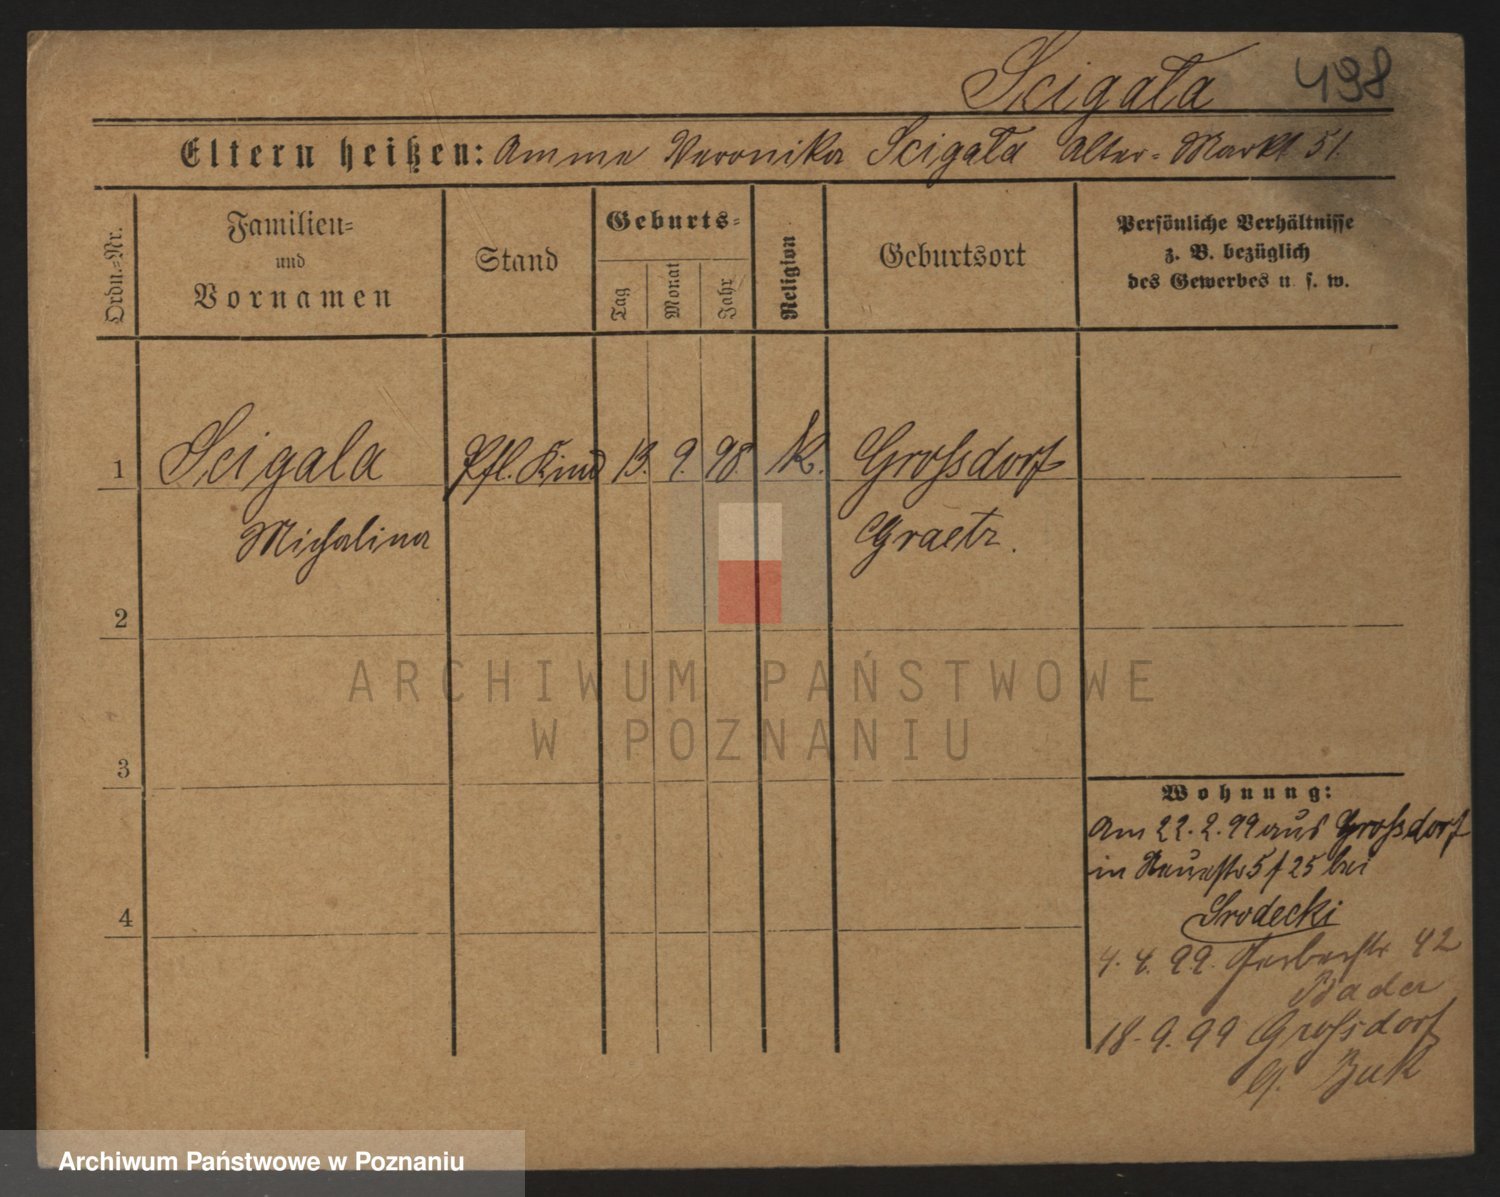 Scigała 498
Eltern heißen: Amme Veronika Scigała Alter-Markt 51.
Ordn.-Nr.
Familien-
und
Vornamen
Stand
Geburts-
Tag
Monat
Jahr
Religion
Geburtsort
Persönliche Verhältnisse
z. B. bezüglich
des Gewerbes u. s. w.
1 Scigala Pfl. Kind 13. 9. 98 K. Grossdorf
Michalina Graetz.
2
3
4
ARCHIWUM PAŃSTWOWE
W POZNANIU
Wohnung:
Am 22.2.99 aus Grossdorf
in 25 bei
Srodecki
4. 4. 99. 42
Bader
18. 9. 99 Grossdorf
Buk
Archiwum Państwowe w Poznaniu